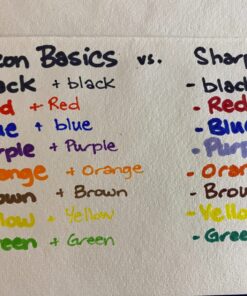 zon Basics vs. Sharp
ack + black - black
ed + Red - Red
ue + blue - Blue
rple + Purple - Purpl
ange + Orange - Oran
rown + Brown - Brow
llow + Yellow - Yello
reen + Green - Green